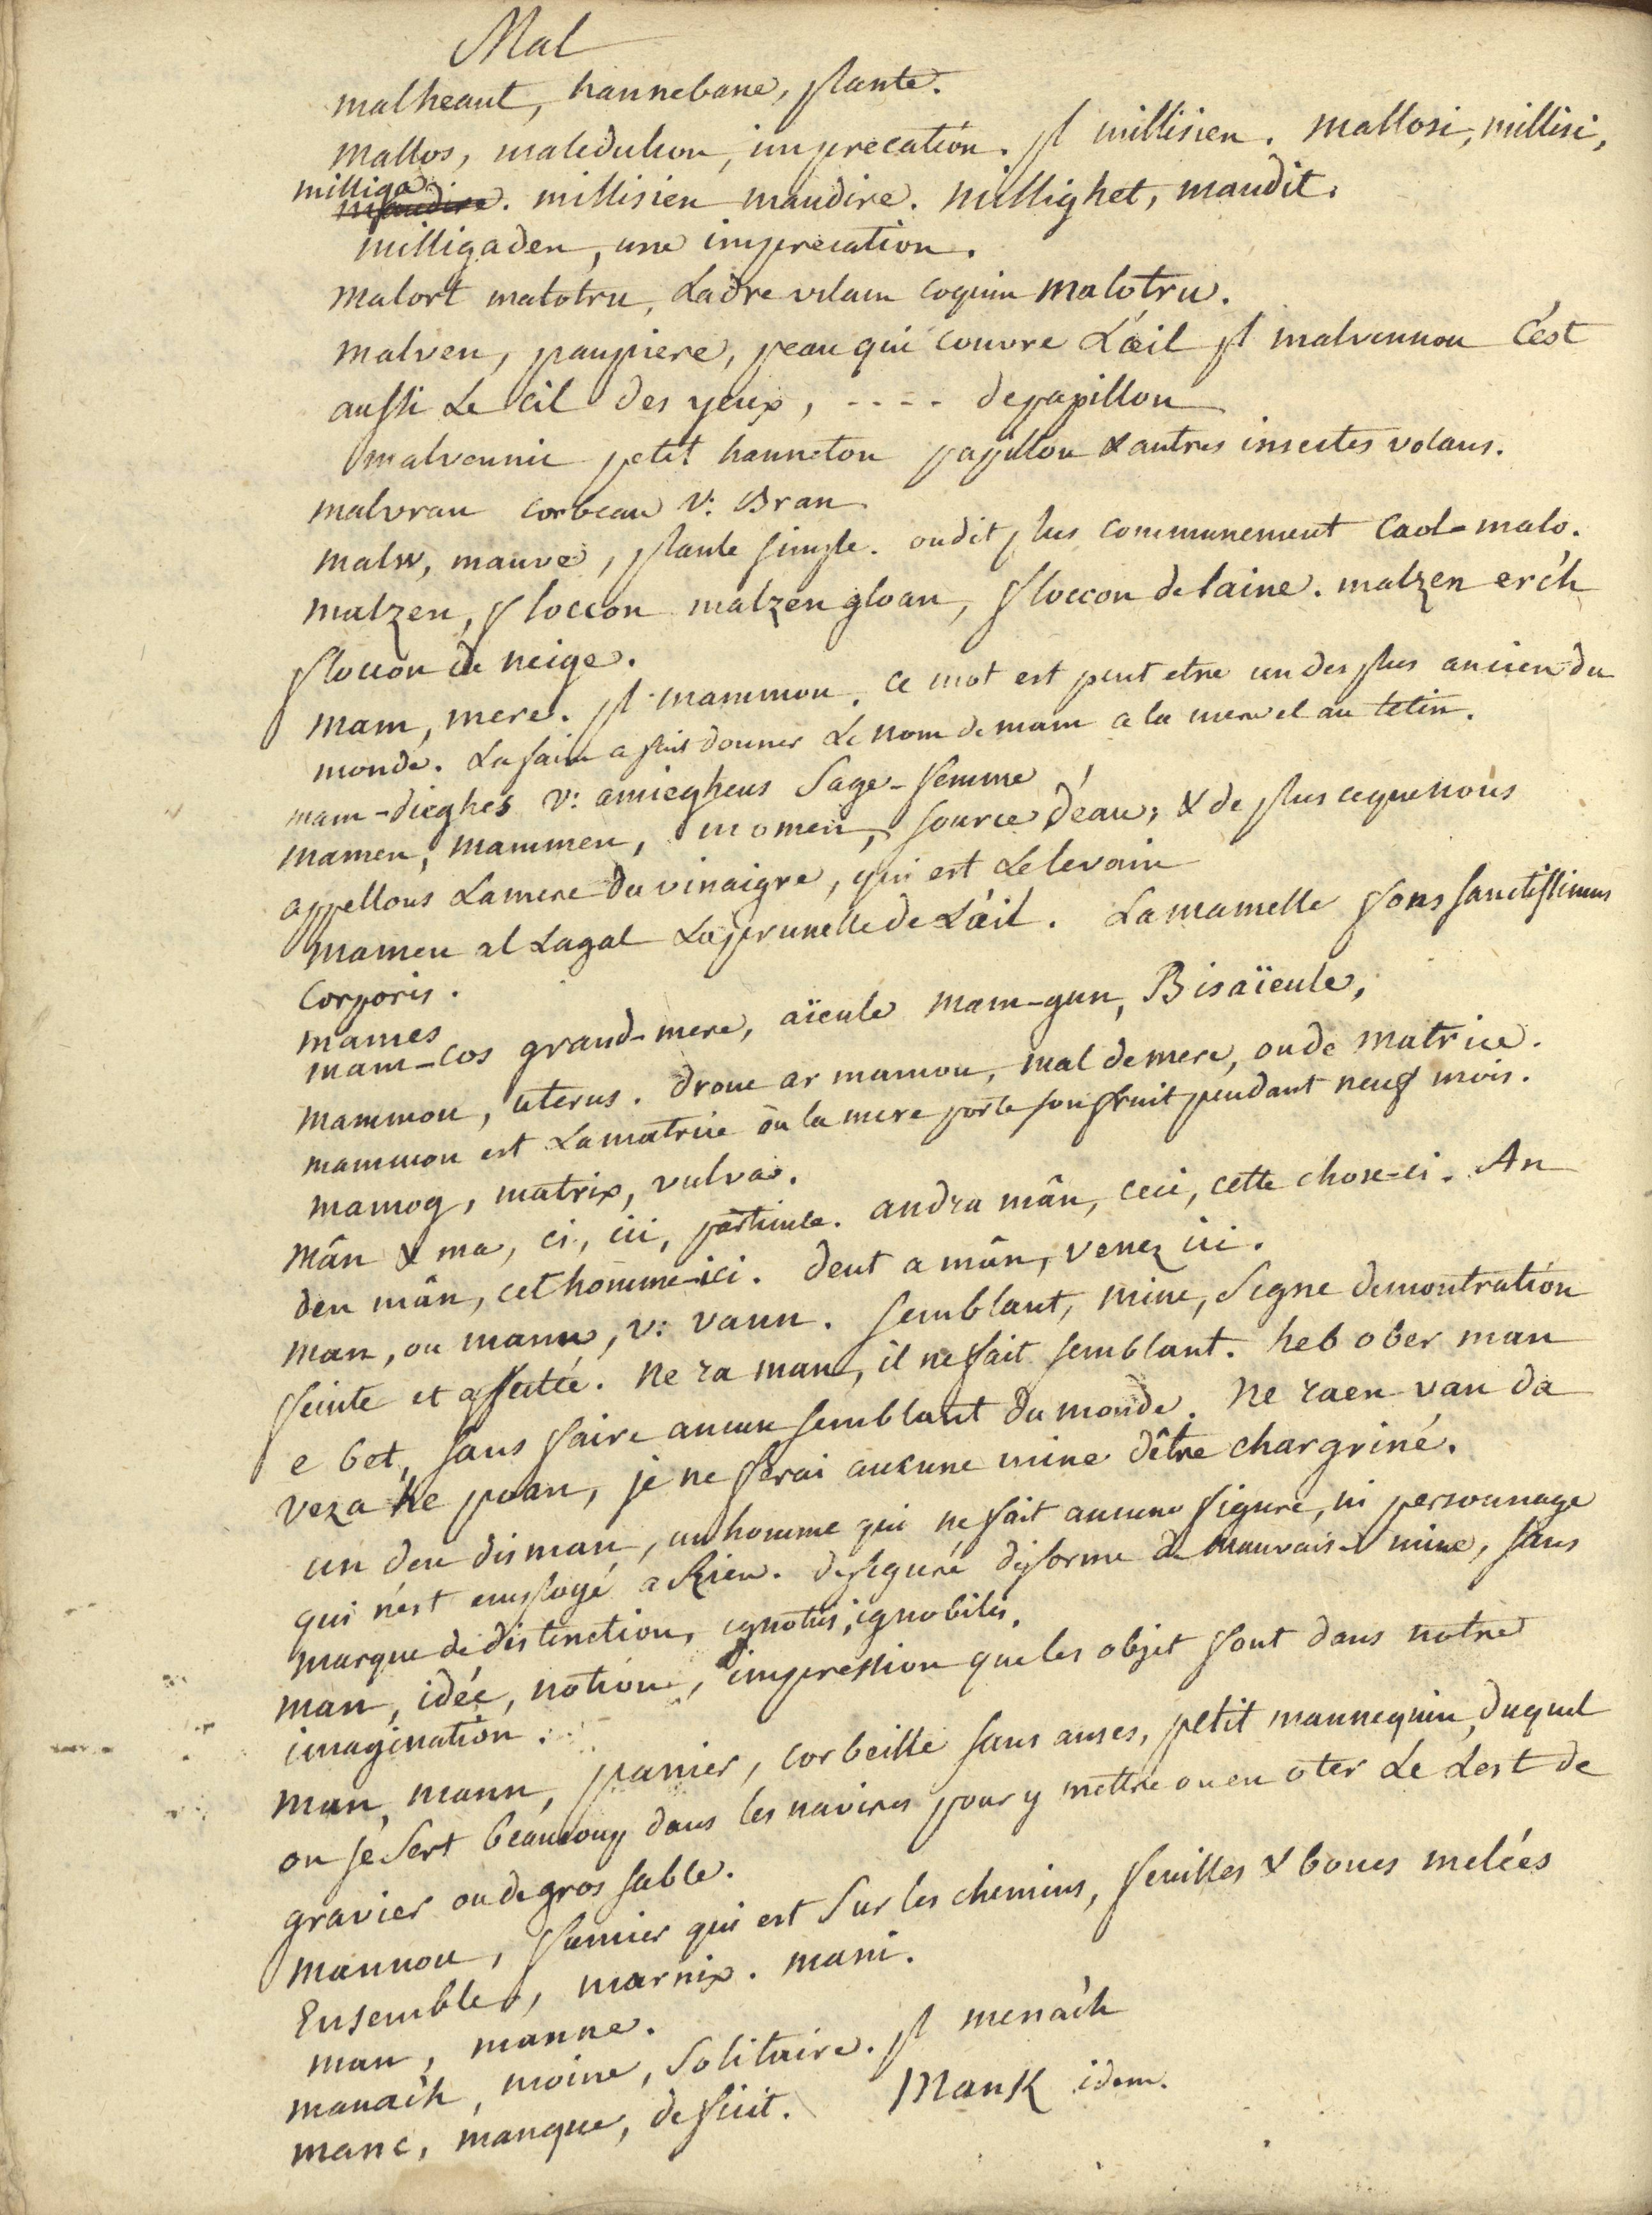 Mal
malheaut, hannebane, plante.
mallos, malediction, imprecation. pl millisien. mallosi, millisi,
milliga
maudire. millisien maudire. millighet, maudit.
milligaden, une imprecation.
malort malotru, Ladre vilain coquin malotru.
malven, paupiere, peau qui couvre L'œil pl malvennou C'est
aussi Le cil des yeux, ---- de papillon
malvennic petit hanneton papillon & autres insectes volans.
malvran corbeau v: Bran
malw, mauve, plante simple. on dit plus communement Caol-malo.
malzen, floccon malzen gloan, floccon de laine. malzen erc'h
floccon de neige.
mam, mere. pl mammou. ce mot est peut etre un des plus ancien du
monde. La faim a fait donner Le nom de mam a la mere et au tetin.
mam-dieghes v: amieghens Sage-femme
mamen, mammen, momen, source d'eau; & de plus ceque nous
appellons La mere du vinaigre, qui est Le levain
mamen al Lagat La prunelle de L'œil. La mamelle fons sanctissimus
Corporis.
mames
mam-cos grand-mere, aïeule mam-gun, Bisaïeule,
mammou, uterus. drouc ar mamou, mal de mere, ou de matrice.
mammou est La matrice ou la mere porte son fruit pendant neuf mois.
mamog, matrix, vulva.
mân & ma, ci, ici, particule. andra mân, ceci, cette chose-ci. An
den mân, cet homme-ici. deut a mân, venez ici.
man, ou mann, v: vann. semblant, mine, signe demontration
feinte et affectée. ne ra man, il ne fait semblant. heb ober man
e bet, sans faire aucun semblant du monde. ne raen van da
veza ke poan, je ne ferai aucune mine d'être chargriné.
un den disman, un homme qui ne fait aucune figure, ni personnage
qui n'est employé a Rien. defiguré difforme de mauvaise mine, sans
marque de distinction, ignotus, ignobilis.
man, idée, notion, impression que les objet font dans notre
imagination.
man, mann, panier, corbeille sans anses, petit mannequin, duquel
on se sert beaucoup dans les navires pour y mettre ou en oter Le Lest de
gravier ou de gros sable.
mannou, fumier qui est sur les chemins, feuilles & boues melées
Ensemble, marnix. mani.
man, manne.
manac'h, moine, Solitaire. pl menac'h
manc, manque, deficit. Mank idem.